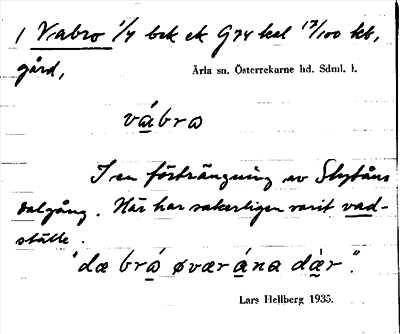 1 Vabro 1/4 bsk ek G74 kal 17/100 kb,
gård,
Ärla sn. Österrekarne hd. Sdml. l.
vábro
I en förträngning av Slytåns
dalgång. Här har sakerligen varit vad-
ställe.
"dæ brǻ øvær ána dær".
Lars Hellberg 1935.